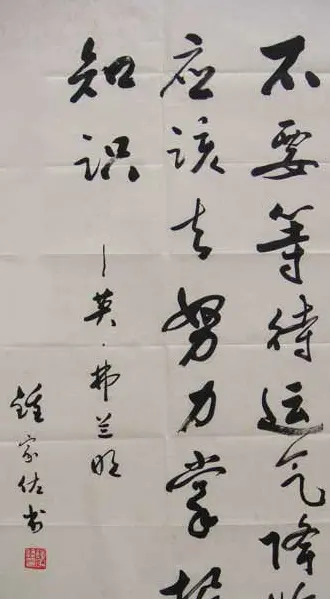 不要等待运气降
应该去努力掌
知识
—英·弗兰明
鍾家佐书